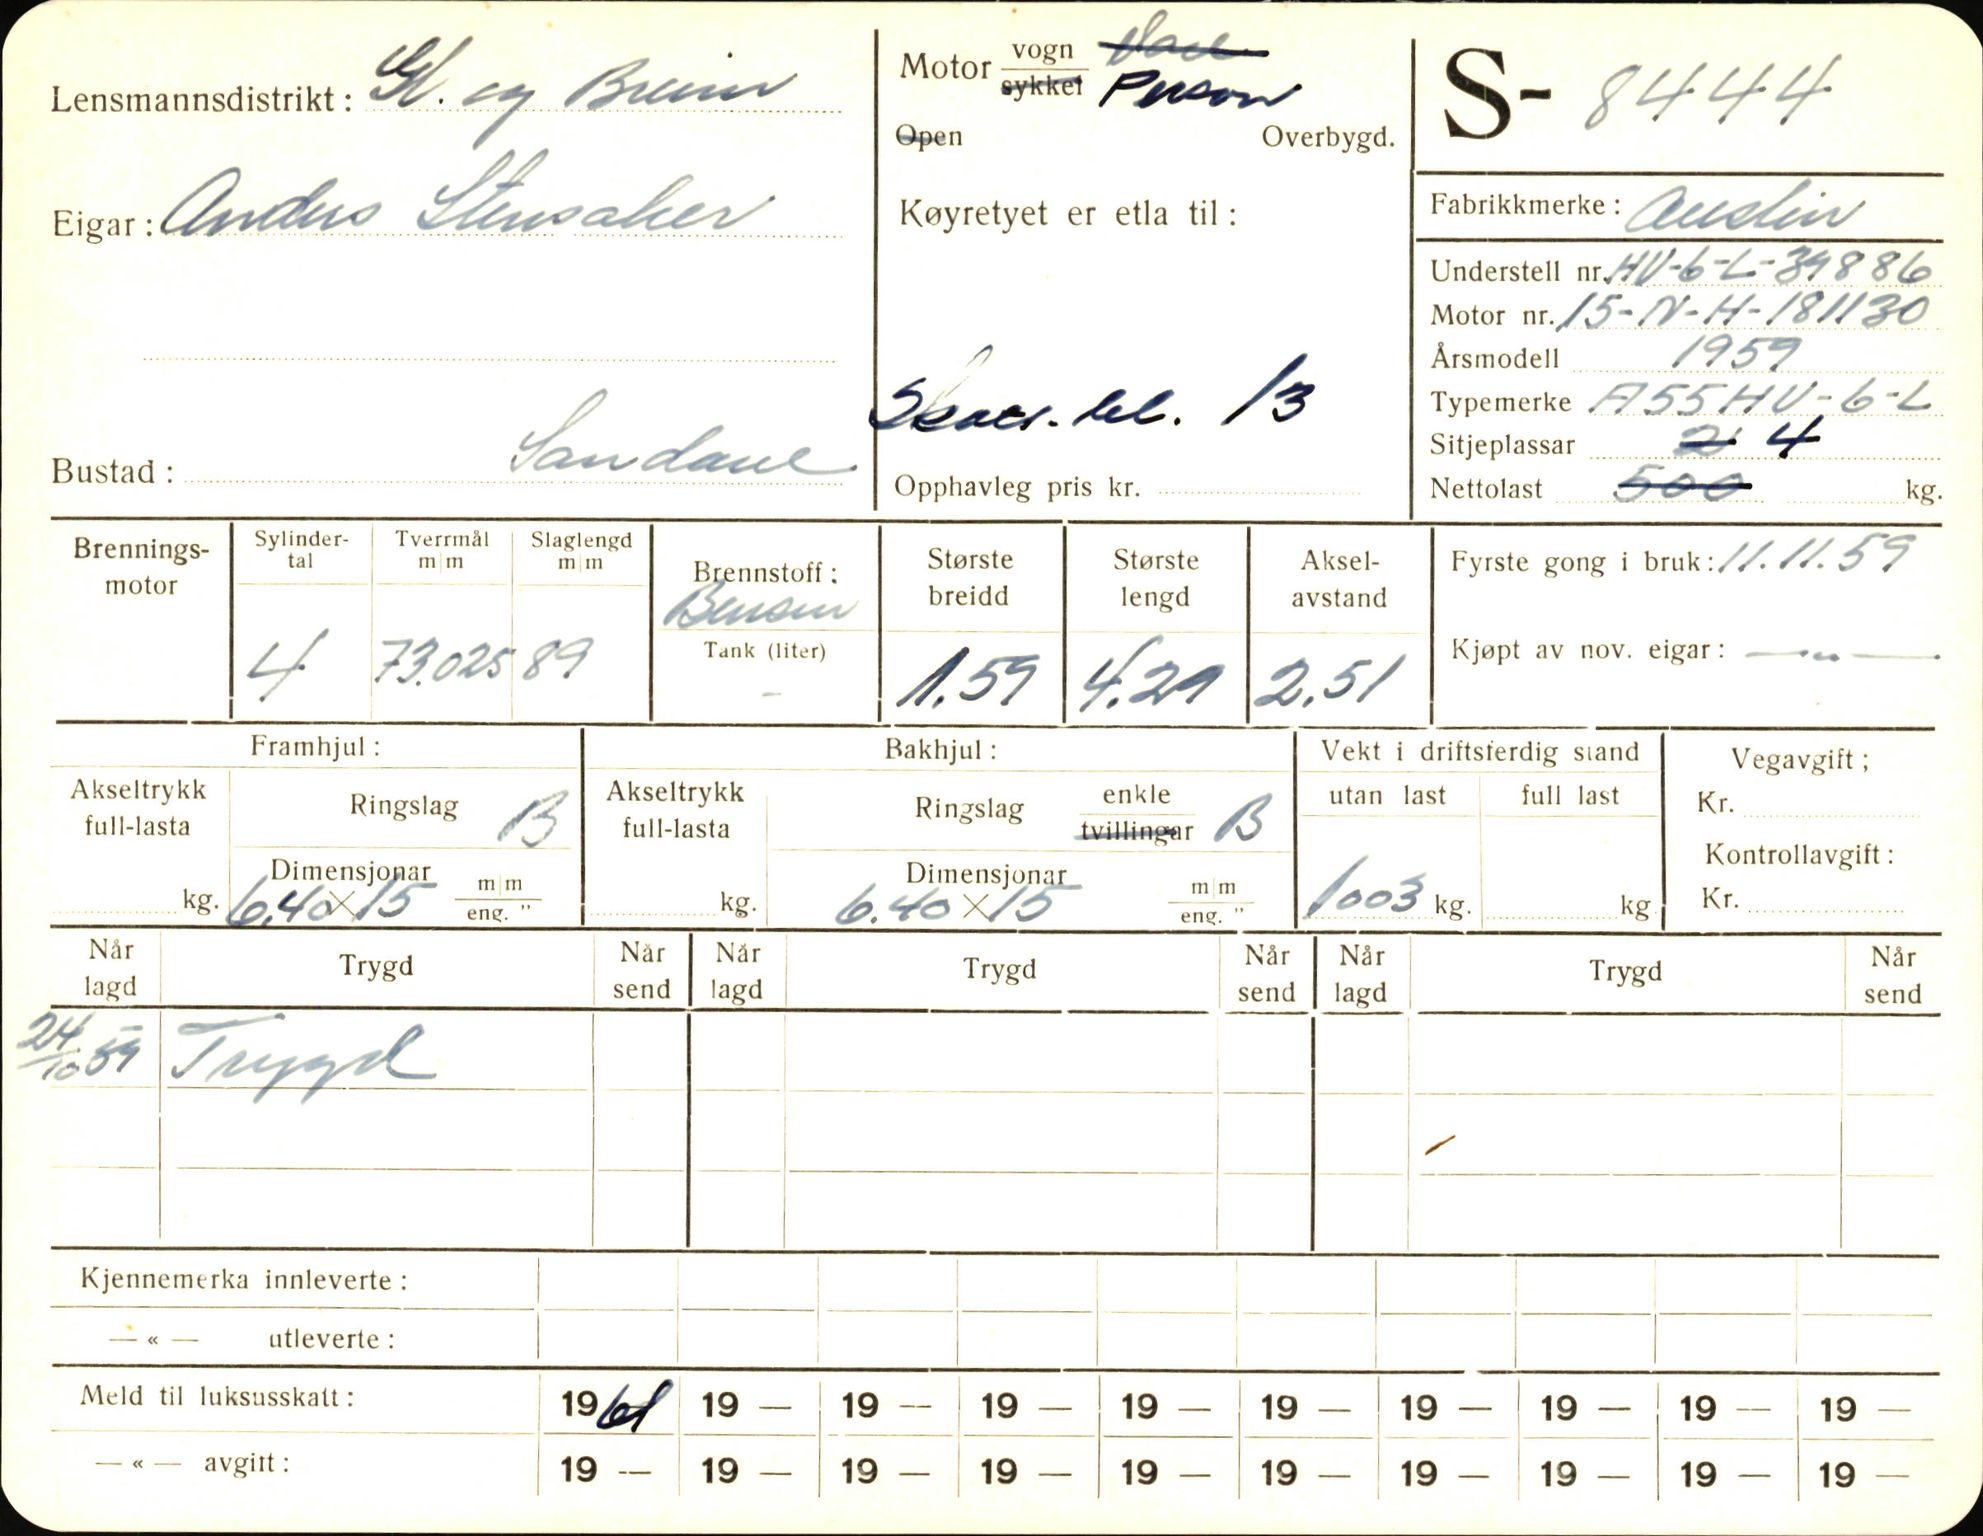 Lensmannsdistrikt: Gl. og Breim
Eigar: Anders Stensaker
Bustad: Sandane
Motor vogn Vare
sykkel Person
Open Overbygd.
Køyretyet er etla til:
13
Opphavleg pris kr.
S- 8444
Fabrikkmerke: Austin
Understell nr. HV-6-L-34886
Motor nr. 15-N-H-181130
Årsmodell 1959
Typemerke A55HV-6-L
Sitjeplassar 2 4
Nettolast 500 kg.
Brennings-
motor
Sylinder-
tal
4
Tverrmål
m|m
73.025
Slaglengd
m|m
89
Brennstoff:
Bensin
Tank (liter)
-
Største
breidd
1.59
Største
lengd
4.29
Aksel-
avstand
2.51
Fyrste gong i bruk: 11.11.59
Kjøpt av nov. eigar: — „ —
Framhjul:
Akseltrykk
full-lasta
kg.
Ringslag B
Dimensjonar m|m
6.40×15 eng. "
Bakhjul:
Akseltrykk
full-lasta
kg.
Ringslag enkle
tvillingar B
Dimensjonar m|m
6.40×15 eng. "
Vekt i driftsferdig stand
utan last full last
1003 kg. kg
Vegavgift;
Kr.
Kontrollavgift:
Kr.
Når
lagd Trygd Når
send Når
lagd Trygd Når
send Når
lagd Trygd Når
send
24/10 59 Trygd
Kjennemerka innleverte:
— « — utleverte:
Meld til luksusskatt: 19 61 19 — 19 — 19 — 19 — 19 — 19 — 19 — 19 — 19 —
— « — avgitt: 19 — 19 — 19 — 19 — 19 — 19 — 19 — 19 — 19 — 19 —